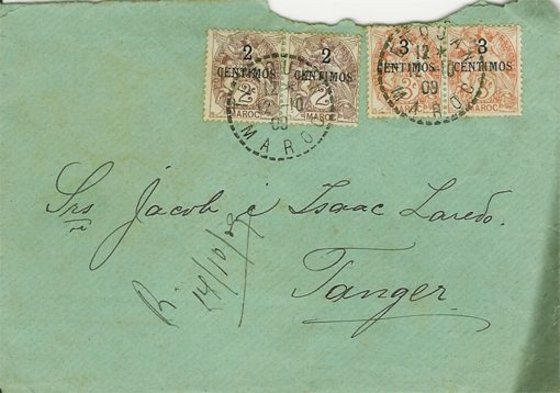 2 2 3 3
CENTIMOS CENTIMOS CENTIMOS CENTIMOS
MAROC MAROC MAROC
12 * 12 *
10 10
09 09
MAROC MAROC
Srs Jacob é Isaac Laredo.
Tanger
R. 14/10/09